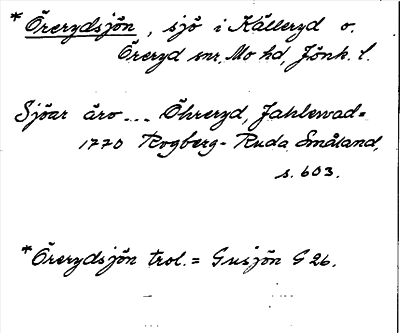 * Örerydsjön, sjö i Källeryd o.
Öreryd snr, Mo hd, Jönk. l.
Sjöar äro ... Öhreryd, Jahlewad=
1770 Rogberg-Ruda Småland,
s. 603.
* Örerydsjön trol. = Gusjön G 26.